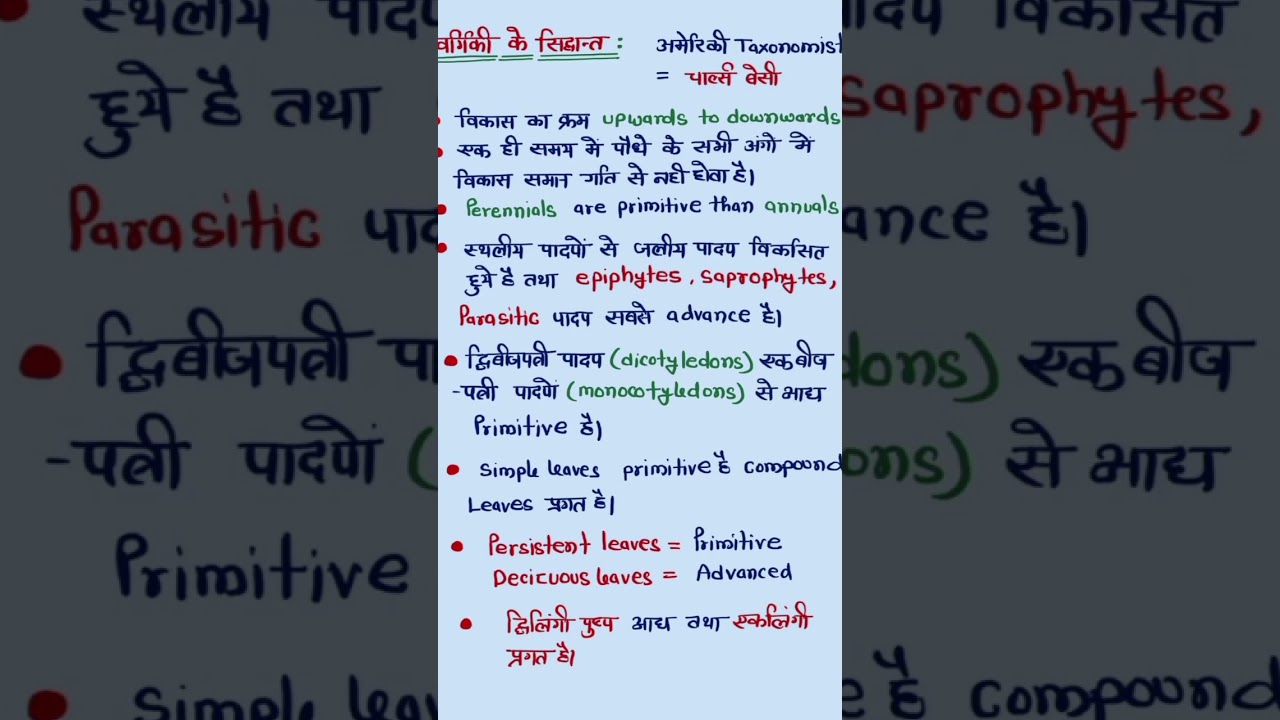 वर्गिकी के सिद्धान्त : अमेरिकी Taxonomist
= चार्ल्स बेसी
• विकास का क्रम upwards to downwards
• एक ही समय में पौधे के सभी अंगो में
विकास समान गति से नही होता है।
• Perennials are primitive than annuals
• स्थलीय पादपों से जलीय पादप विकसित
हुये है तथा epiphytes, saprophytes,
Parasitic पादप सबसे advance है।
• द्विबीजपत्री पादप (dicotyledons) एकबीज
-पत्री पादपों (monocotyledons) से आद्य
Primitive है।
• Simple leaves primitive है compound
Leaves प्रगत है।
• Persistent leaves = Primitive
Decicuous leaves = Advanced
• द्विलिंगी पुष्प आद्य तथा एकलिंगी
प्रगत है।